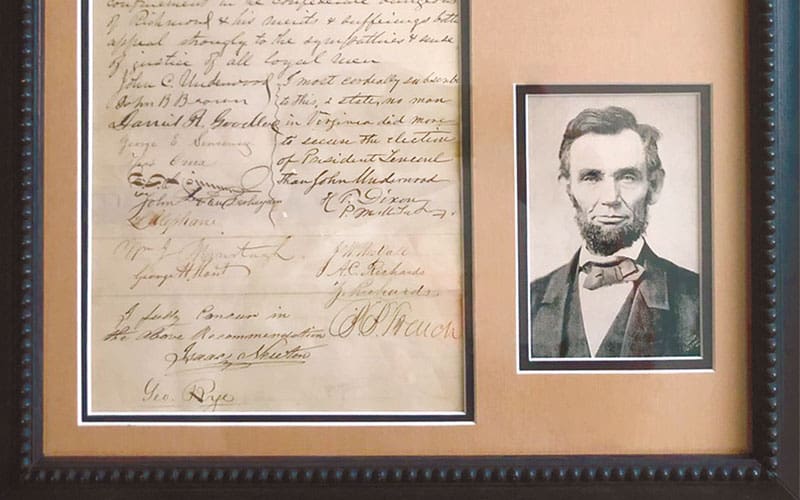 confinement in the Confederate dungeons
of Richmond & his merits & sufferings both
appeal strongly to the sympathies & sense
of justice of all loyal men
John C. Underwood
John B Brown
Daniel R. Goodloe
George E.
John
Stephane
Wm J.
George H.
I most cordially subscribe
to this, & state, no man
in Virginia did more
to secure the election
of President Lincoln
than John Underwood
H. T. Dixon
J. W.
A. C. Richards
J. Richards
B. B. French
I fully concur in
the above Recommendation
Isaac Newton
Geo. Rye